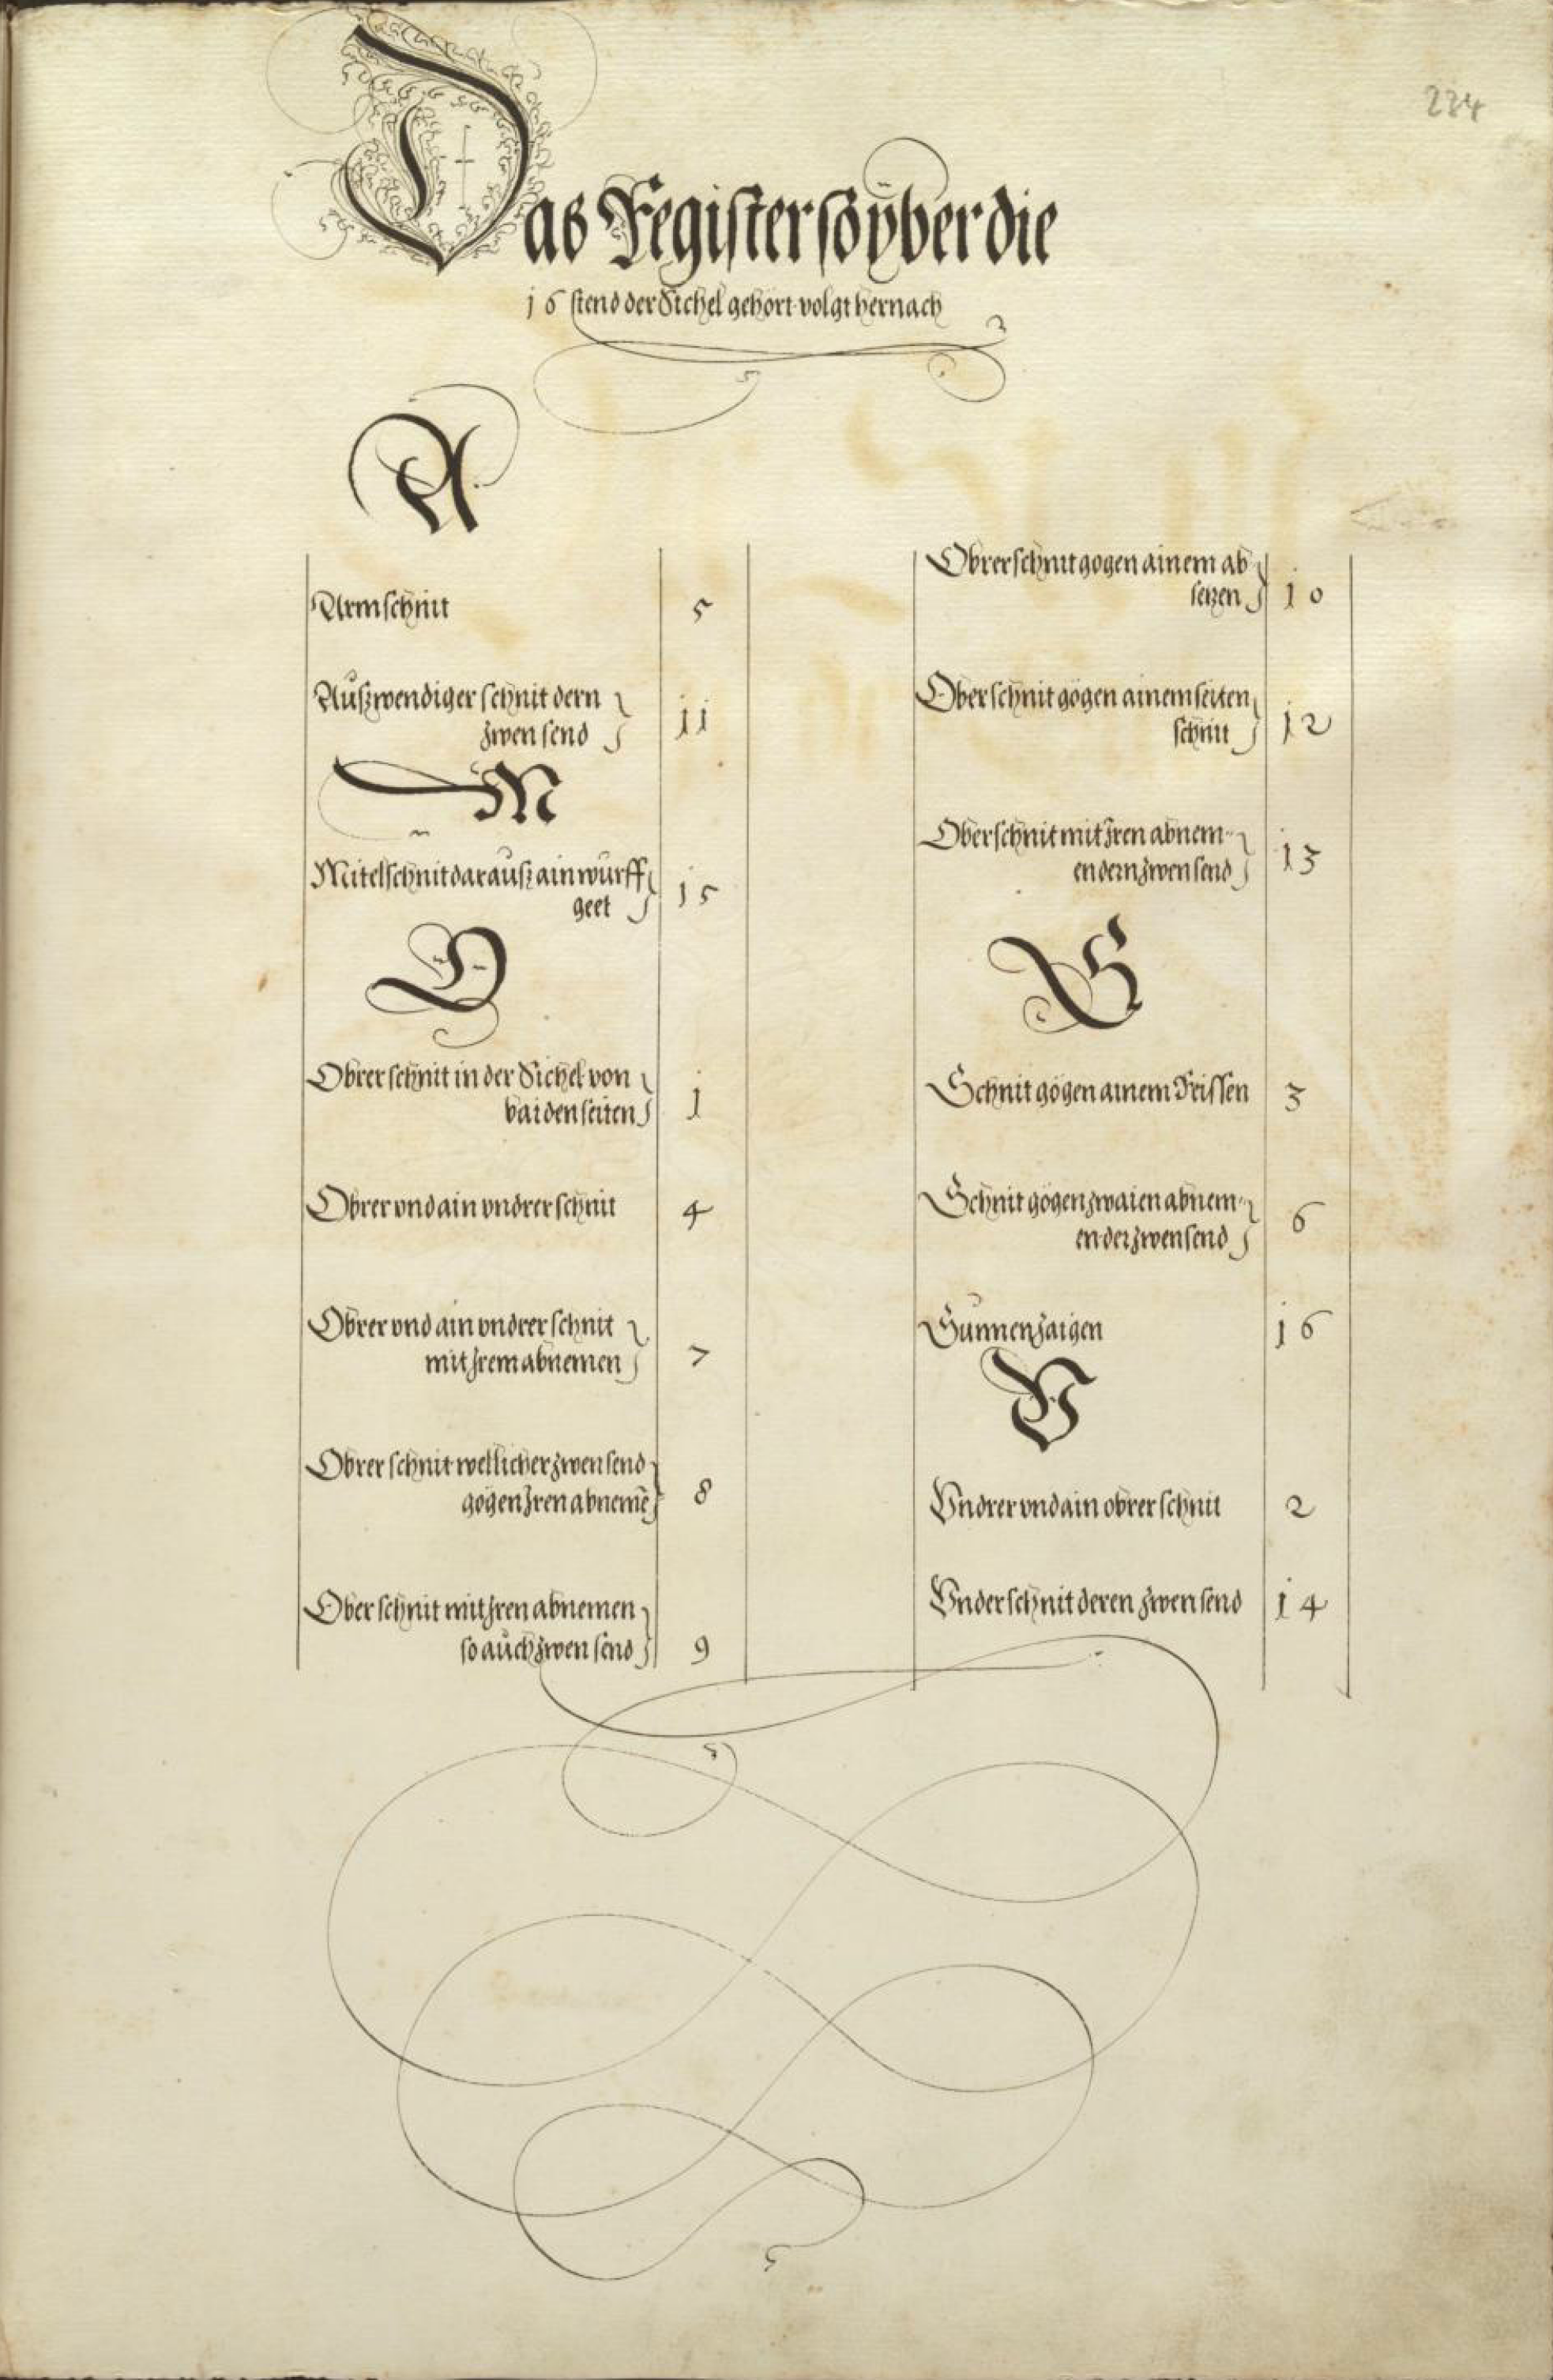 234
Das Register so ÿber die
16 stend der Sichel gehört volgt hernach
A
Armschnit 5
Außwendiger schnit dern
zwen send 11
M
Mitelschnit darauß ain wurff
geet 15
O
Obrer schnit in der Sichel von
baiden seiten 1
Obrer vnd ain vndrer schnit 4
Obrer vnd ain vndrer schnit
mit Jrem abnemen 7
Obrer schnit wellicher zwen send
gögen Jren abnemē 8
Ober schnit mit Jren abnemen
so auch zwen send 9
Obrer schnit gogen ainem ab
setzen 10
Ober schnit gögen ainem seiten
schnit 12
Ober schnit mit Jren abnem-
endern zwen send 13
S
Schnit gögen ainem Reissen 3
Schnit gögen zwaien abnem-
ender zwen send 6
Sunnenzaigen 16
V
Vndrer vnd ain obrer schnit 2
Vnder schnit deren zwen send 14